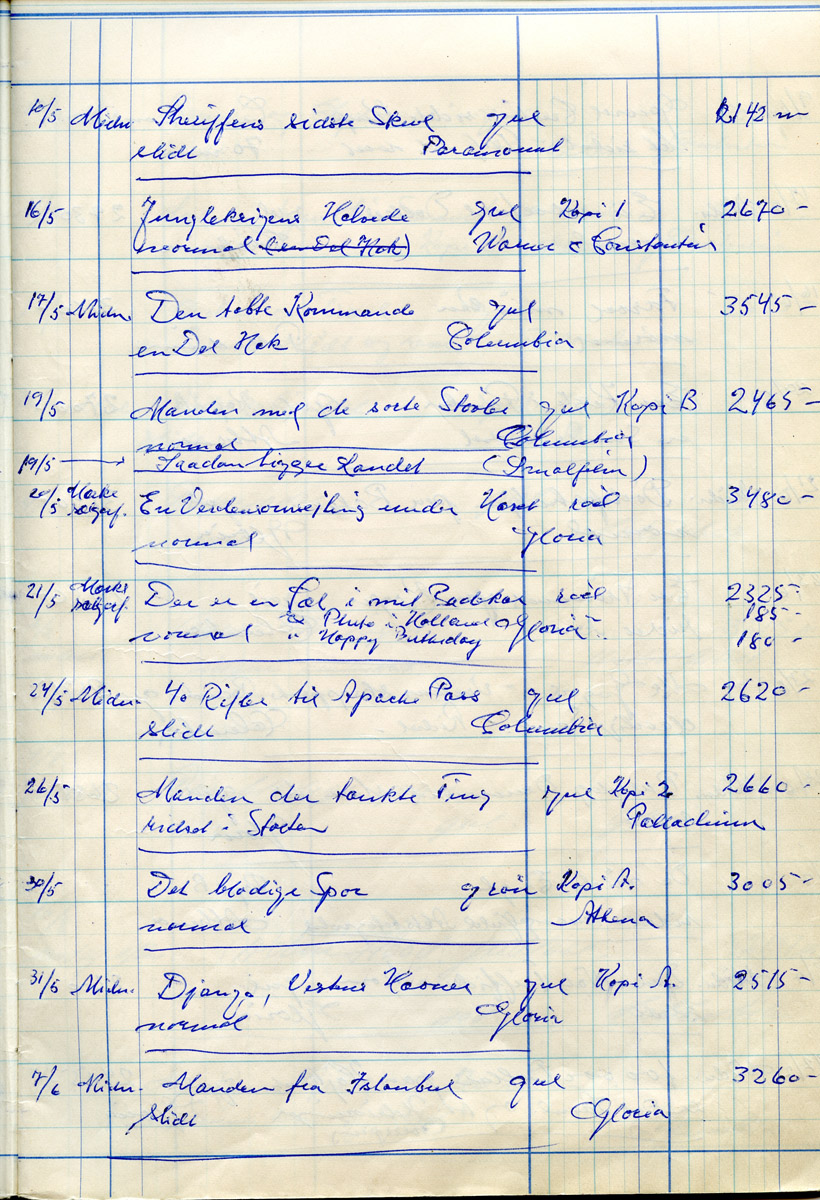 10/5 Midn. Sheriffens sidste Skud gul 2142 m
slidt Paramount
16/5 Junglekrigens Helvede gul Kopi 1 2670 -
normal (en Del Hak) Warner & Constantin
17/5 Midn. Den tabte Kommando gul 3545 -
en Del Hak Columbia
19/5 Manden med de sorte Støvler gul Kopi B 2465 -
normal Columbia
19/5 Saadan ligger Landet (Smalfilm)
20/5 En Verdensomsejling under Havet rød 3480 -
normal Gloria
21/5 Der er en Sæl i mit Badekar rød 2325 -
& Pluto i Holland 185 -
normal " Happy Birthday Gloria 180 -
24/5 Midn. 40 Rifler til Apache Pass gul 2620 -
slidt Columbia
26/5 Manden der tænkte Ting gul Kopi 2 2660 -
ridset i Starten Palladium
30/5 Det blodige Spor grøn Kopi A. 3005 -
normal Athena
31/5 Midn. Django, Vestens Hævner gul Kopi A. 2515 -
normal Gloria
7/6 Midn. Manden fra Istanbul gul 3260 -
slidt Gloria